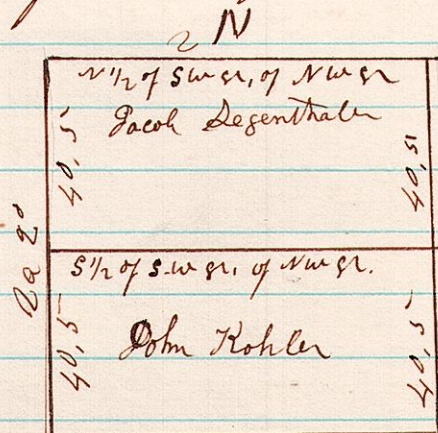 N
N 1/2 of S w qr, of N w qr
Jacob Degenthaler
40,5
40,5
S 1/2 of S w qr, of N w qr.
John Kohler
40,5
40,5